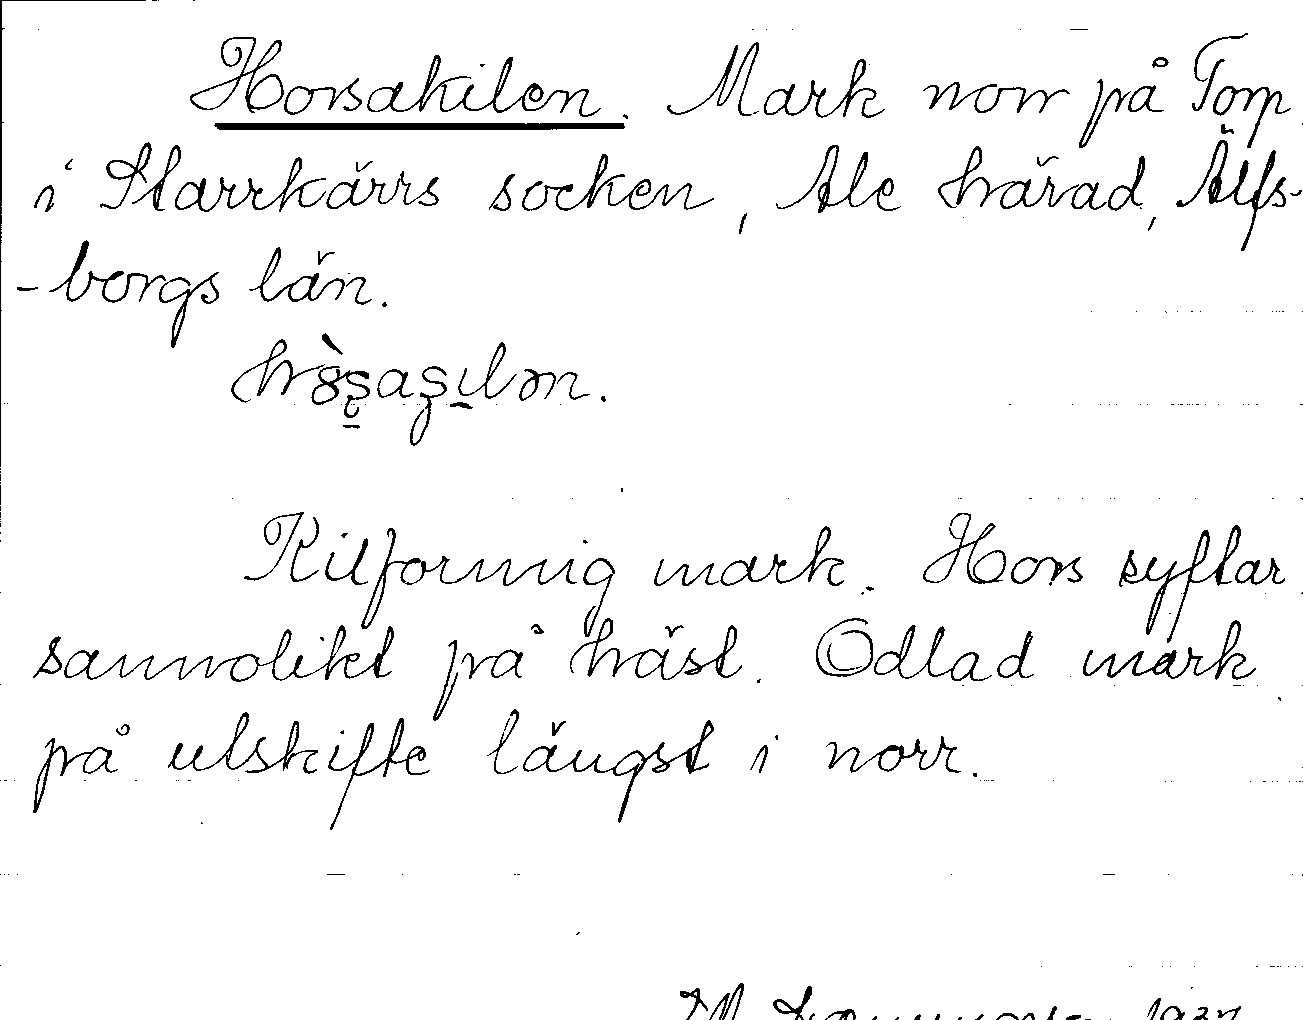 Horsakilen. Mark norr på Torp
i Starrkärrs socken, Ale härad, Älfs-
-borgs län.
Kilformig mark. Hors syftar
sannolikt på häst. Odlad mark
på utskifte längst i norr.